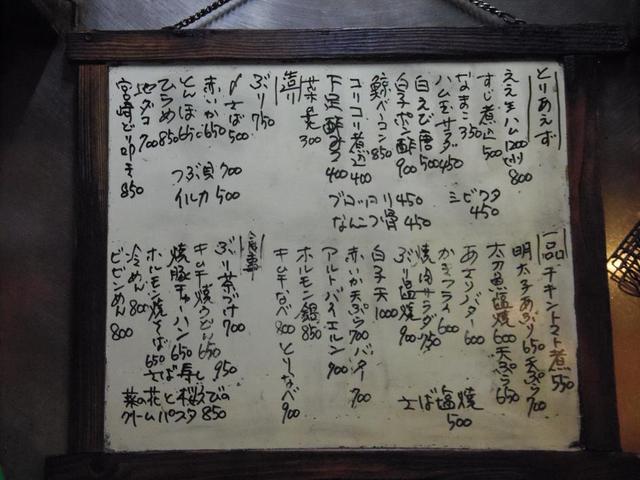 とりあえず
ええ生ハム 1200 切り 800
すじ煮込 500
なまこ 350
ハム玉サラダ 450
白えび唐 500
白子ポン酢 900
鯨ベーコン 850
コリコリ煮込 400
下足酢みそ 400
菜の花 300
シビワタ 450
ブロッコリ 450
なんこつ 450
造り
ぶり 750
〆さば 500
赤いか 650
とんぼ 650
ひらめ 850
地ダコ 700
宮崎どり叩き 850
つぶ貝 700
イルカ 500
一品
チキントマト煮 550
明太子あぶり 650 天ぷら 700
太刀魚塩焼 600 天ぷら 650
あさりバター 600
かきフライ 600
焼肉サラダ 750
ぶり塩焼 900
白子天 1000
赤いか天ぷら 700 バター 700
アルトバイエルン 900
ホルモン鍋 850
キムチなべ 800 とりなべ 900
さば塩焼 500
食事
ぶり茶づけ 700
キムチ焼うどん 650
焼豚チャーハン 650
ホルモン焼そば 650
冷めん 800
ビビンめん 800
さば寿し 950
菜の花と桜えびの
クリームパスタ 850